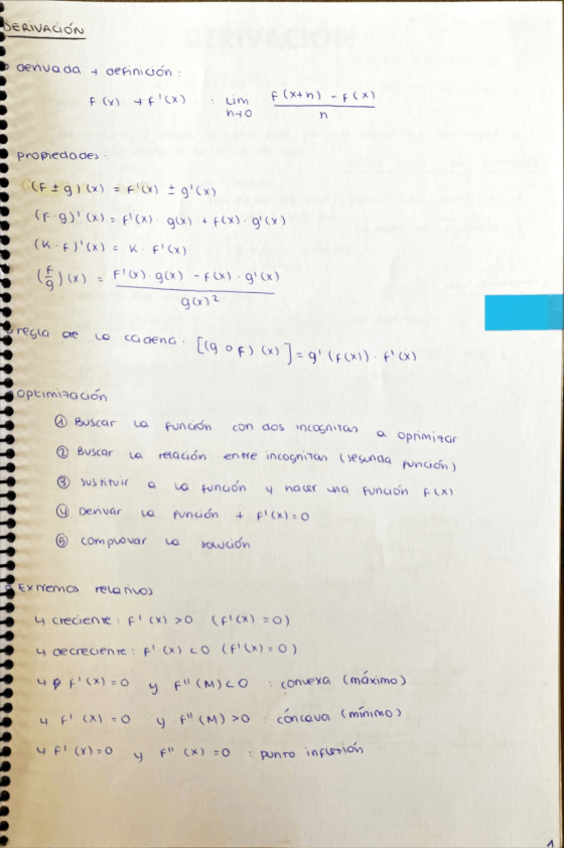 DERIVACIÓN
derivada → definición:
F(x) → F'(x) : lim h→0 F(x+h) - F(x) / h
propiedades:
(F ± g)(x) = F'(x) ± g'(x)
(F·g)'(x) = F'(x)· g(x) + F(x)· g'(x)
(K·F)'(x) = K· F'(x)
(F/g)(x) = F'(x)·g(x) - F(x)·g'(x) / g(x)²
regla de la cadena: [(g o F)(x)] = g'(F(x))· F'(x)
optimización
① Buscar la función con dos incognitas a optimizar
② Buscar la relación entre incognitas (segunda función)
③ sustituir a la función y hacer una función F(x)
④ Derivar la función → F'(x)=0
⑤ comprovar la solución
Extremos relativos
↳ creciente: F'(x) >0 (F'(x)=0)
↳ decreciente: F'(x) <0 (F'(x)=0)
↳ F'(x)=0 y F''(M)<0 : convexa (máximo)
↳ F'(x)=0 y F''(M)>0 : cóncava (mínimo)
↳ F'(x)=0 y F''(x)=0 : punto inflexión
1